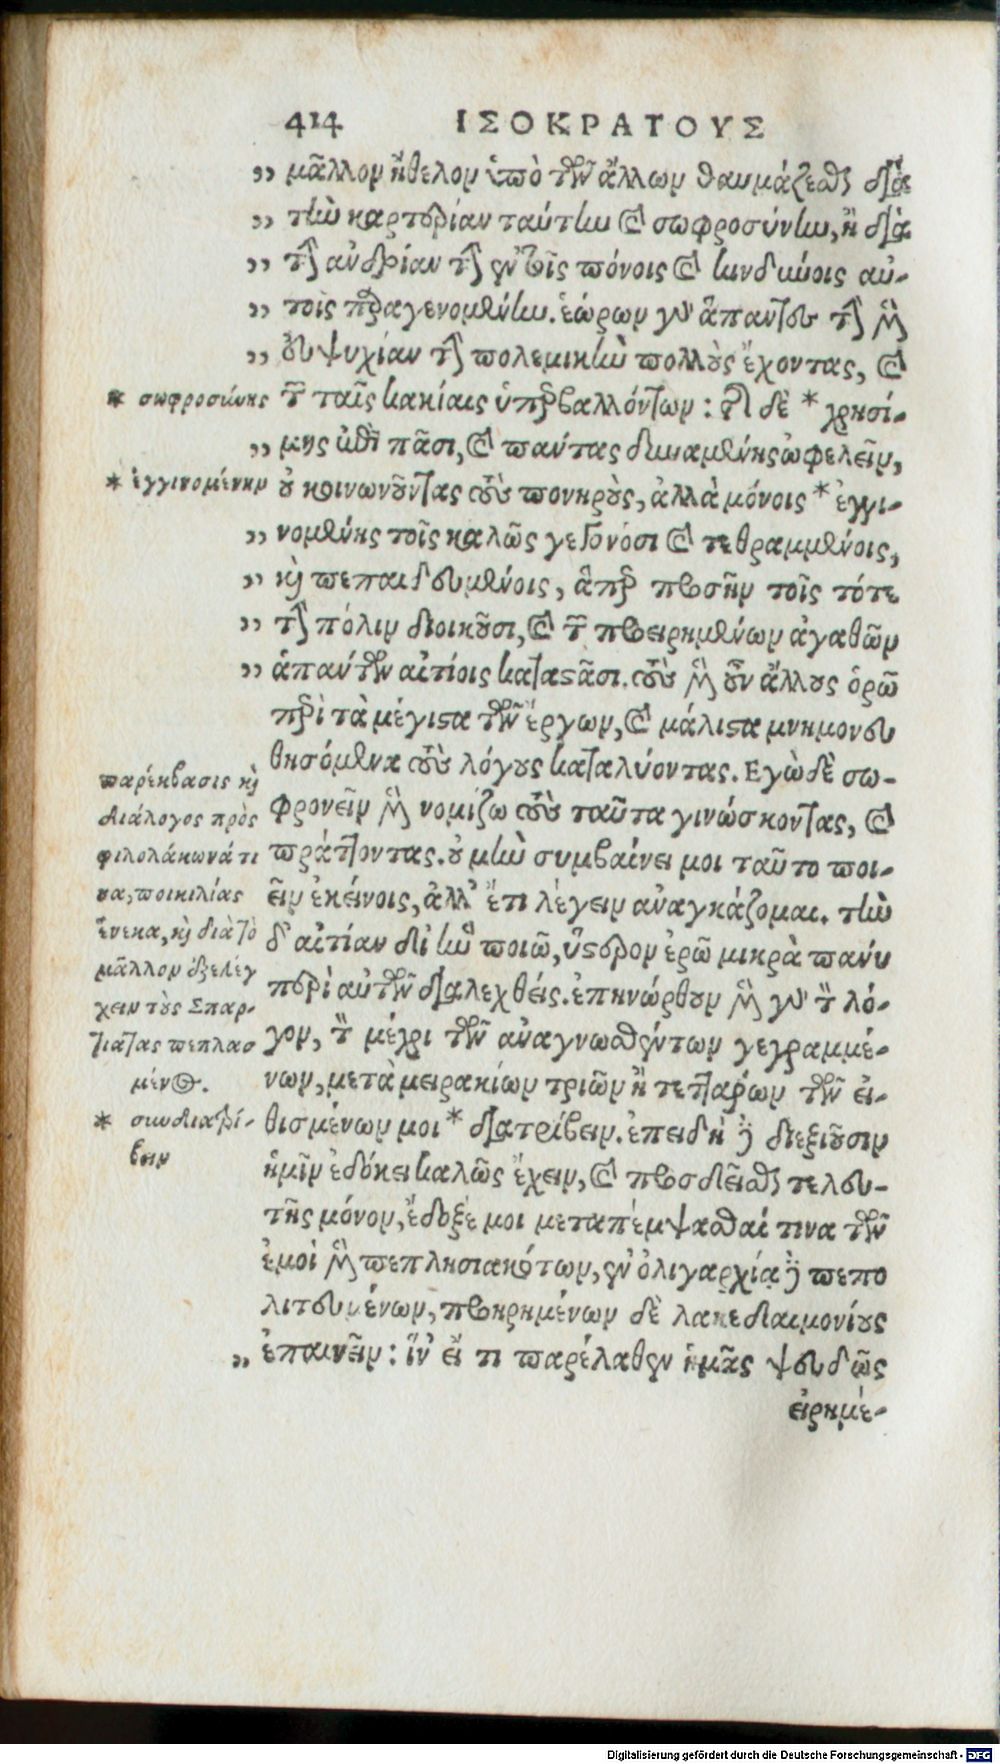 414 ΙΣΟΚΡΑΤΟΥΣ
„ μᾶλλον ἤθελον ὑπὸ τῶν ἄλλων θαυμάζεσθαι διὰ
„ τὴν καρτερίαν ταύτην καὶ σωφροσύνην, ἢ διὰ
„ τὴν ἀνδρίαν τὴν ἐν τοῖς πόνοις καὶ κινδύνοις αὐ-
„ τοῖς παραγενομένην. ἑώρων γὰρ ἅπαντες τὴν μὲν
„ εὐψυχίαν τὴν πολεμικὴν πολλοὺς ἔχοντας, καὶ
* σωφροσύνης τῶν ταῖς κακίαις ὑπερβαλλόντων: τῆς δὲ * χρησί-
„ μης ἐπὶ πᾶσι, καὶ πάντας δυναμένης ὠφελεῖν,
* ἐγγινομένην οὐ κοινωνοῦντας τοὺς πονηροὺς, ἀλλὰ μόνοις * ἐγγι-
„ νομένης τοῖς καλῶς γεγονόσι καὶ τεθραμμένοις,
„ καὶ πεπαιδευμένοις, ἅπερ προσῆν τοῖς τότε
„ τὴν πόλιν διοικοῦσι, καὶ τῶν προειρημένων ἀγαθῶν
„ ἁπάντων αἰτίοις καταστᾶσι. τοὺς μὲν οὖν ἄλλους ὁρῶ
περὶ τὰ μέγιστα τῶν ἔργων, καὶ μάλιστα μνημονευ
θησόμενα τοὺς λόγους καταλύοντας. Ἐγὼ δὲ σω-
φρονεῖν μὲν νομίζω τοὺς ταῦτα γινώσκοντας, καὶ
πράττοντας. οὐ μὴν συμβαίνει μοι ταὐτο ποι-
εῖν ἐκείνοις, ἀλλ' ἔτι λέγειν ἀναγκάζομαι. τὴν
δ' αἰτίαν δι' ἣν ποιῶ, ὕστερον ἐρῶ μικρὰ πάνυ
περὶ αὐτῶν διαλεχθείς. ἐπηνώρθουν μὲν γὰρ τὸν λό-
γον, τὸν μέχρι τῶν ἀναγνωσθέντων γεγραμμέ-
νων, μετὰ μειρακίων τριῶν ἢ τεττάρων τῶν εἰ-
θισμένων μοι * διατρίβειν. ἐπειδὴ δὲ διεξιοῦσιν
ἡμῖν ἐδόκει καλῶς ἔχειν, καὶ προσδεῖσθαι τελευ-
τῆς μόνον, ἔδοξέ μοι μεταπέμψασθαί τινα τῶν
ἐμοὶ μὲν πεπλησιακότων, ἐν ὀλιγαρχίᾳ δὲ πεπο
λιτευμένων, προῃρημένων δὲ λακεδαιμονίους
„ ἐπαινεῖν: ἵν' εἴ τι παρέλαθεν ἡμᾶς ψευδῶς
εἰρημέ-
παρέκβασις καὶ
διάλογος πρὸς
φιλολάκωνά τι
να, ποικιλίας
ἕνεκα, καὶ διὰ τὸ
μᾶλλον ἐξελέγ
χειν τοὺς Σπαρ-
τιάτας πεπλασ
μένος.
* συνδιατρί-
βειν
Digitalisierung gefördert durch die Deutsche Forschungsgemeinschaft - DFG